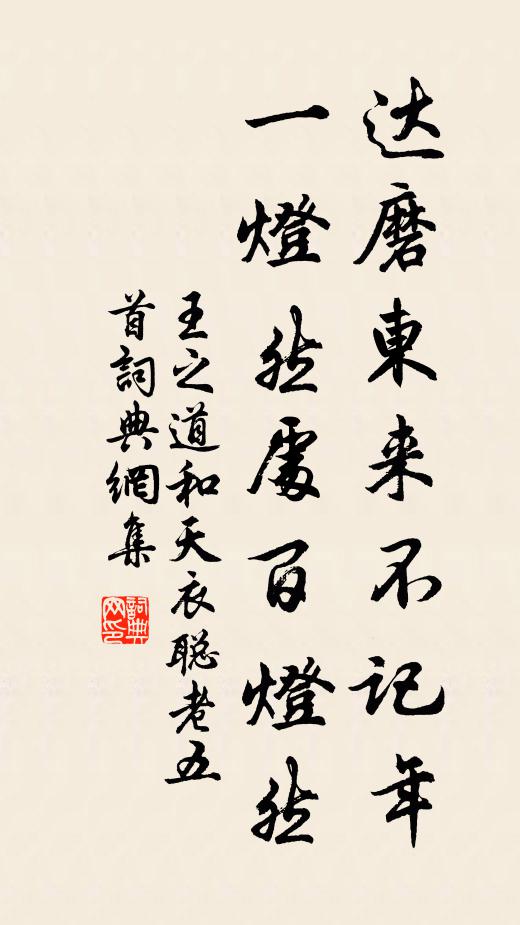 达磨東来不记年
一燈然處百燈然
王之道和天衣聪老五
首詞典網集
詞典
网印